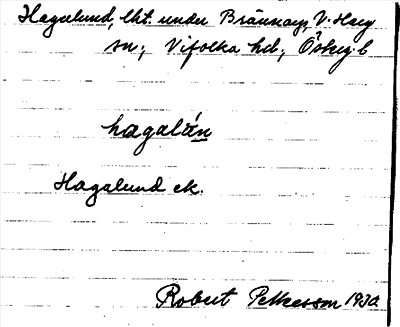 Hagalund, lht. under Brännag, V. Harg
sn; Vifolka hd; Östug. l.
hagalún
Hagalund ek.
Robert Petterson 1930